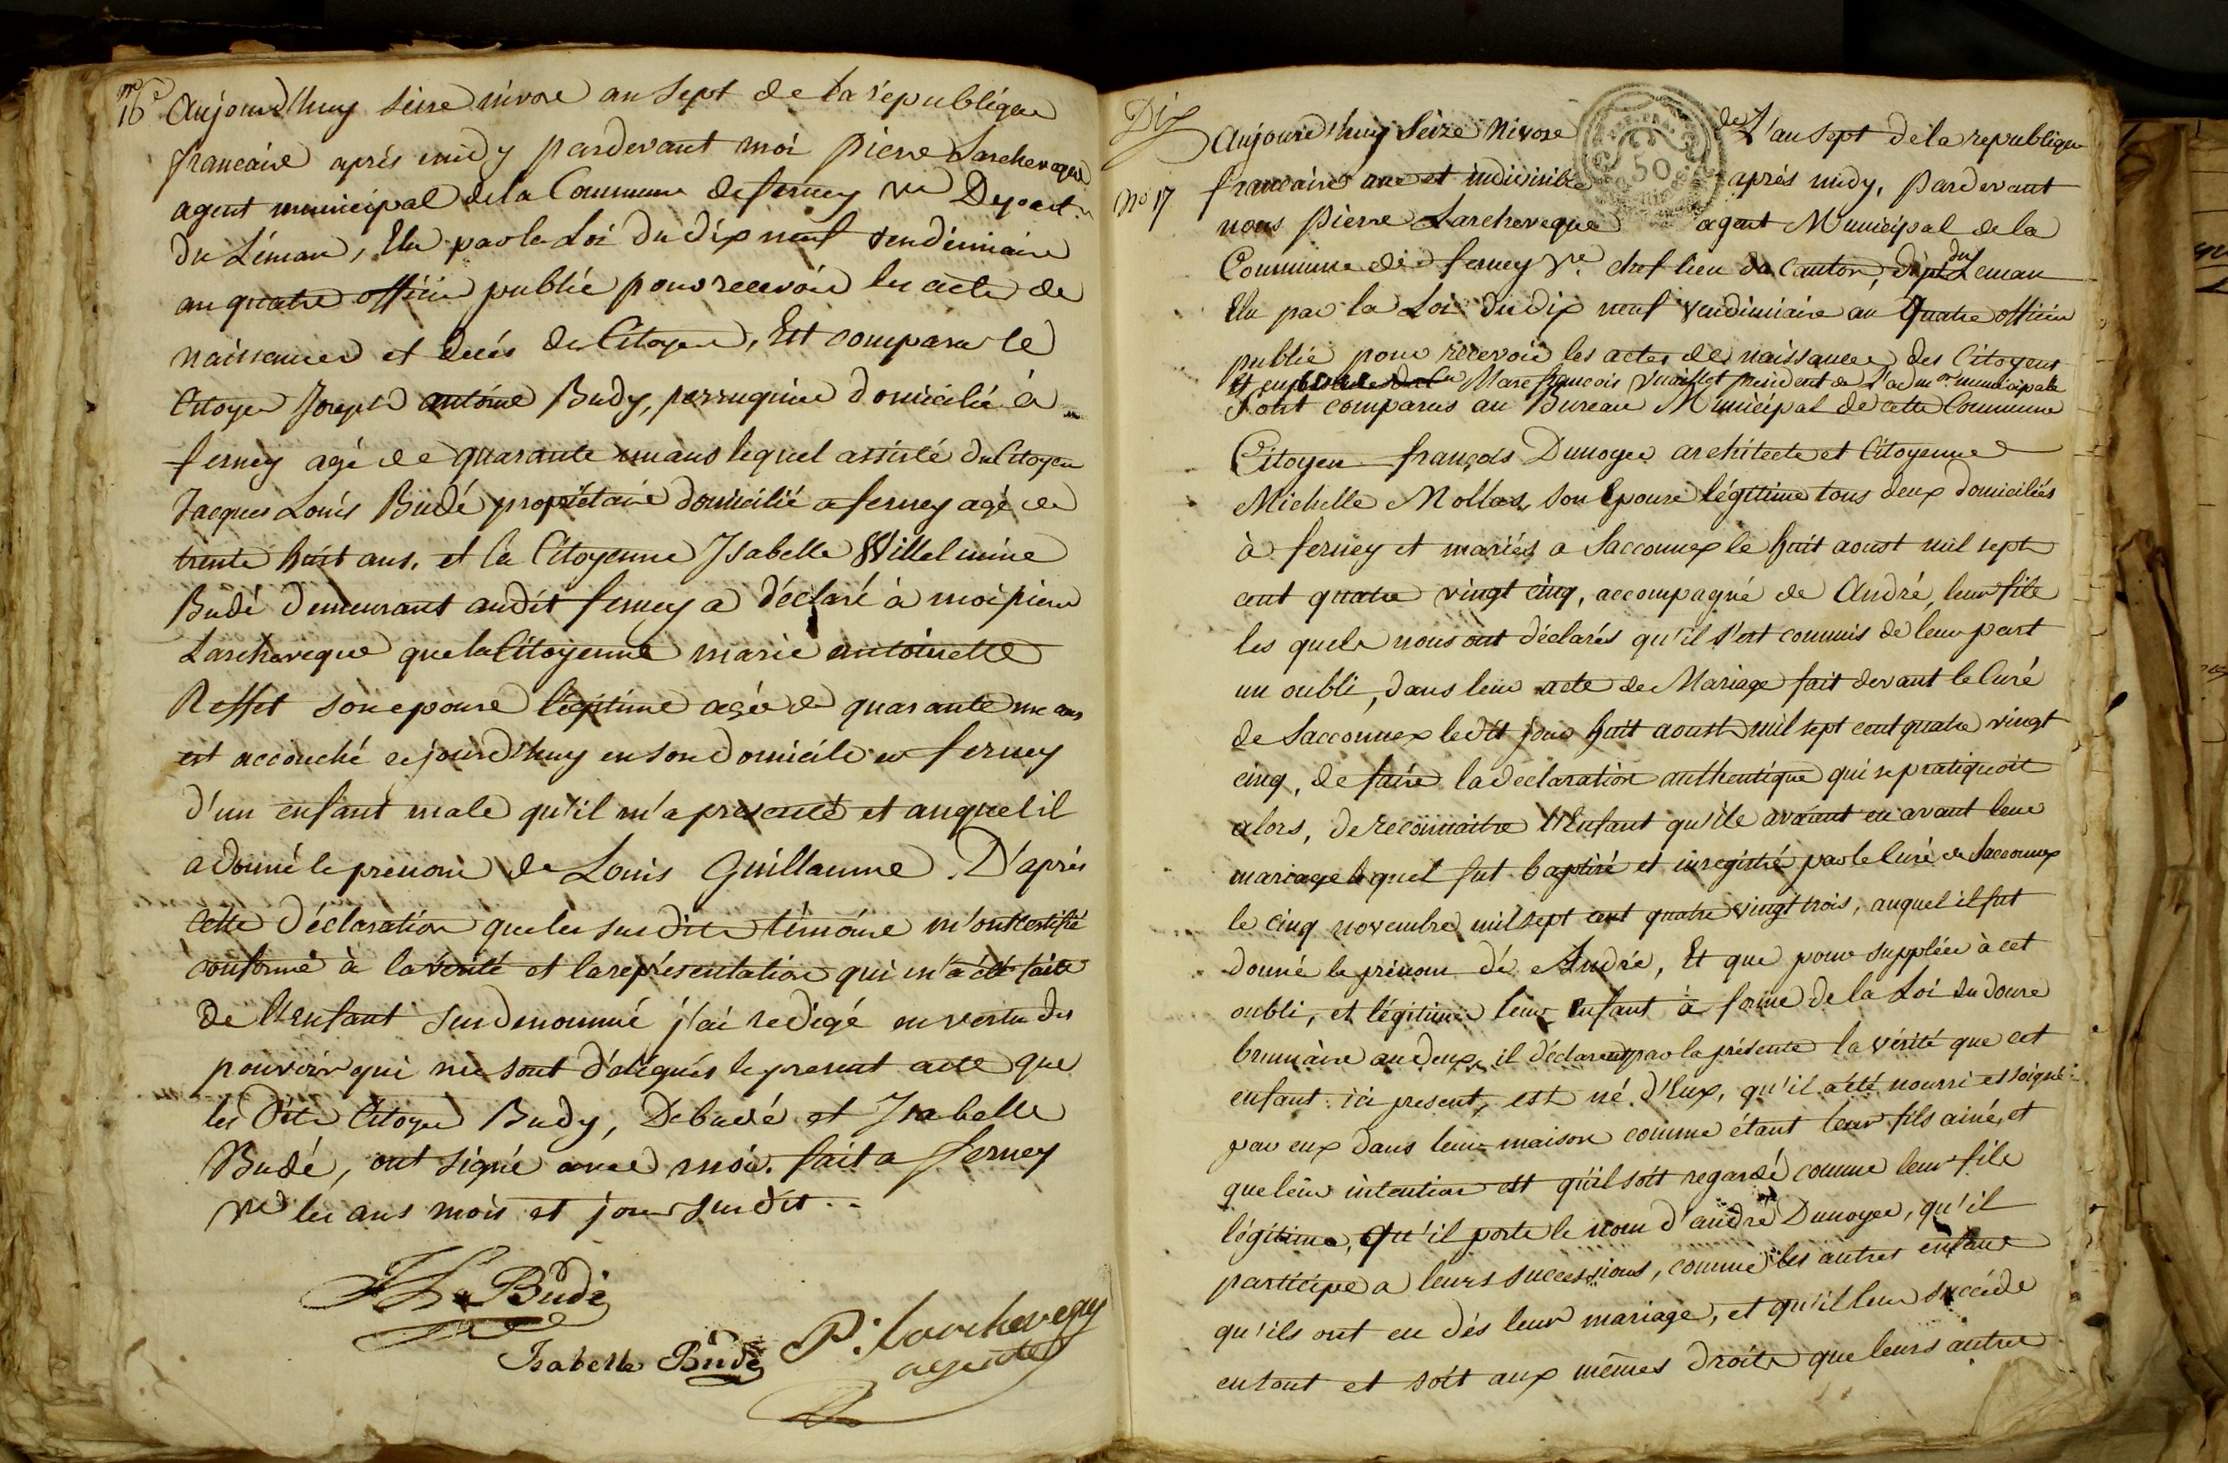 no 16e
Aujourd'huy seise nivose an sept de la république
francaise aprés midy pardevant moi Pierre Larcheveque
agent municipal de la Commune de ferney Vre Depart.
du Léman, Elu par la Loi du dix neuf vendémiaire
an quatre officier public pour recevoir les actes de
naissances et decés des Citoyens, Est comparu le
Citoyen Joseph antoine Budy, perruquier domicilié à
ferney agé de quarante un ans lequel assisté du Citoyen
Jacques Louis Budé propriétaire domicilié a ferney agé de
trente huit ans. et la Citoyenne Isabelle Willelmine
Budé demeurant audit ferney a déclaré à moi pierre
Larcheveque que la Citoyenne marie antoinette
Reffet son epouse légitime agée de quarante un ans
est accouché cejourd'huy en son domicile a ferney
d'un enfant male qu'il m'a presenté et auquel il
a donné le prenom de Louis Guillaume. D'aprés
cette déclaration que les susdits témoins m'ont certifié
conforme à la vérité et la représentation qui m'a été faite
de l'Enfant susdenommé j'ai redigé en vertu des
pouvoirs qui me sont délégués le present acte que
les dits Citoyen Budy, Debudé et Isabelle
Budé, ont signé avec moi. fait a ferney
Vre les ans mois et jour susdit.
J L Budé
Isabelle Budé
P. larchevequ
agent
Dix
No 17
Aujourd'huy Seize Nivose de L'an sept de la republique
francaise une et indivisible aprés midy, Pardevant
50
nous Pierre Larcheveque agent Municipal de la
Commune de ferney Vre. chef lieu de Canton, dépt du Leman
Elu par la Loi du dix neuf vendimiaire an Quatre officier
public pour recevoir les actes de naissances des Citoyens
Et en Marc françois Vuaillet president de l'admon municipale
Sont comparus au Bureau Municipal de cette Commune
Citoyen françois Dunoyer architecte et Citoyenne
Michelle Mollas, son Epouse légitime tous deux domiciliés
à ferney et mariés a Sacconnex le huit aoust mil sept
cent quatre vingt cinq, accompagné de André, leur fils
les quels nous ont déclarés qu'il s'est commis de leur part
un oubli, dans leur acte de Mariage fait devant le Curé
de Sacconnex ledit jour huit aoust mil sept cent quatre vingt
cinq, de faire la declaration authentique qui se pratiquoit
alors, de reconnaitre l'Enfant qu'ils avaient eu avant leur
mariage lequel fut baptisé et enregistré par le Curé de Sacconnex
le cinq novembre mil sept cent quatre vingt trois, auquel il fut
donné le prénom de André, Et que pour suppléer à cet
oubli, et légitimer leur Enfant à forme de la Loi du douze
brumaire an deux, il déclarent par la présente la vérité que cet
enfant ici present, est né d'Eux, qu'il a été nourri et soigné
par eux dans leur maison comme étant leur fils ainé, et
que leur intention est qu'il soit regardé comme leur fils
légitime, Qu'il porte le nom d'andré Dunoyer, qu'il
participe a leurs successions, comme les autres enfans
qu'ils ont eu dés leur mariage, et qu'il leur succéde
en tout et soit aux mêmes droits que leurs autres